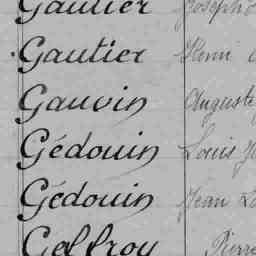 Gautier Joseph
Gautier Henri
Gauvin Auguste
Gédouin Louis
Gédouin Jean
Geffroy Pierre